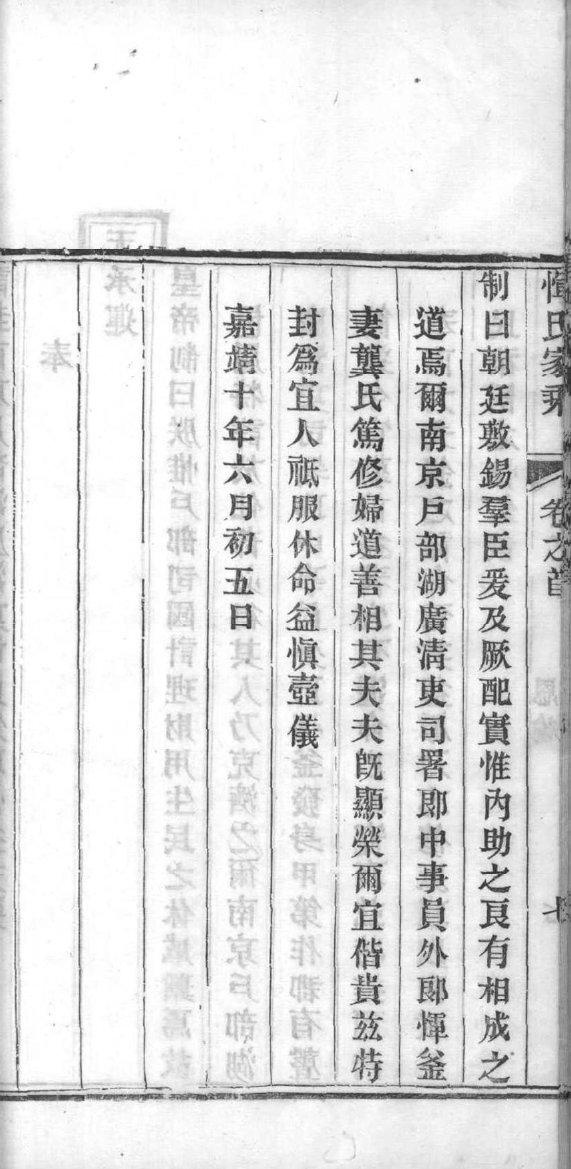 惲氏家乘 卷之首 七
制曰朝廷敷錫羣臣爰及厥配實惟內助之良有相成之
道焉爾南京戶部湖廣清吏司署郎中事員外郎惲釜
妻龔氏篤修婦道善相其夫夫旣顯榮爾宜偕貴茲特
封爲宜人祗服休命益愼壼儀
嘉靖十年六月初五日